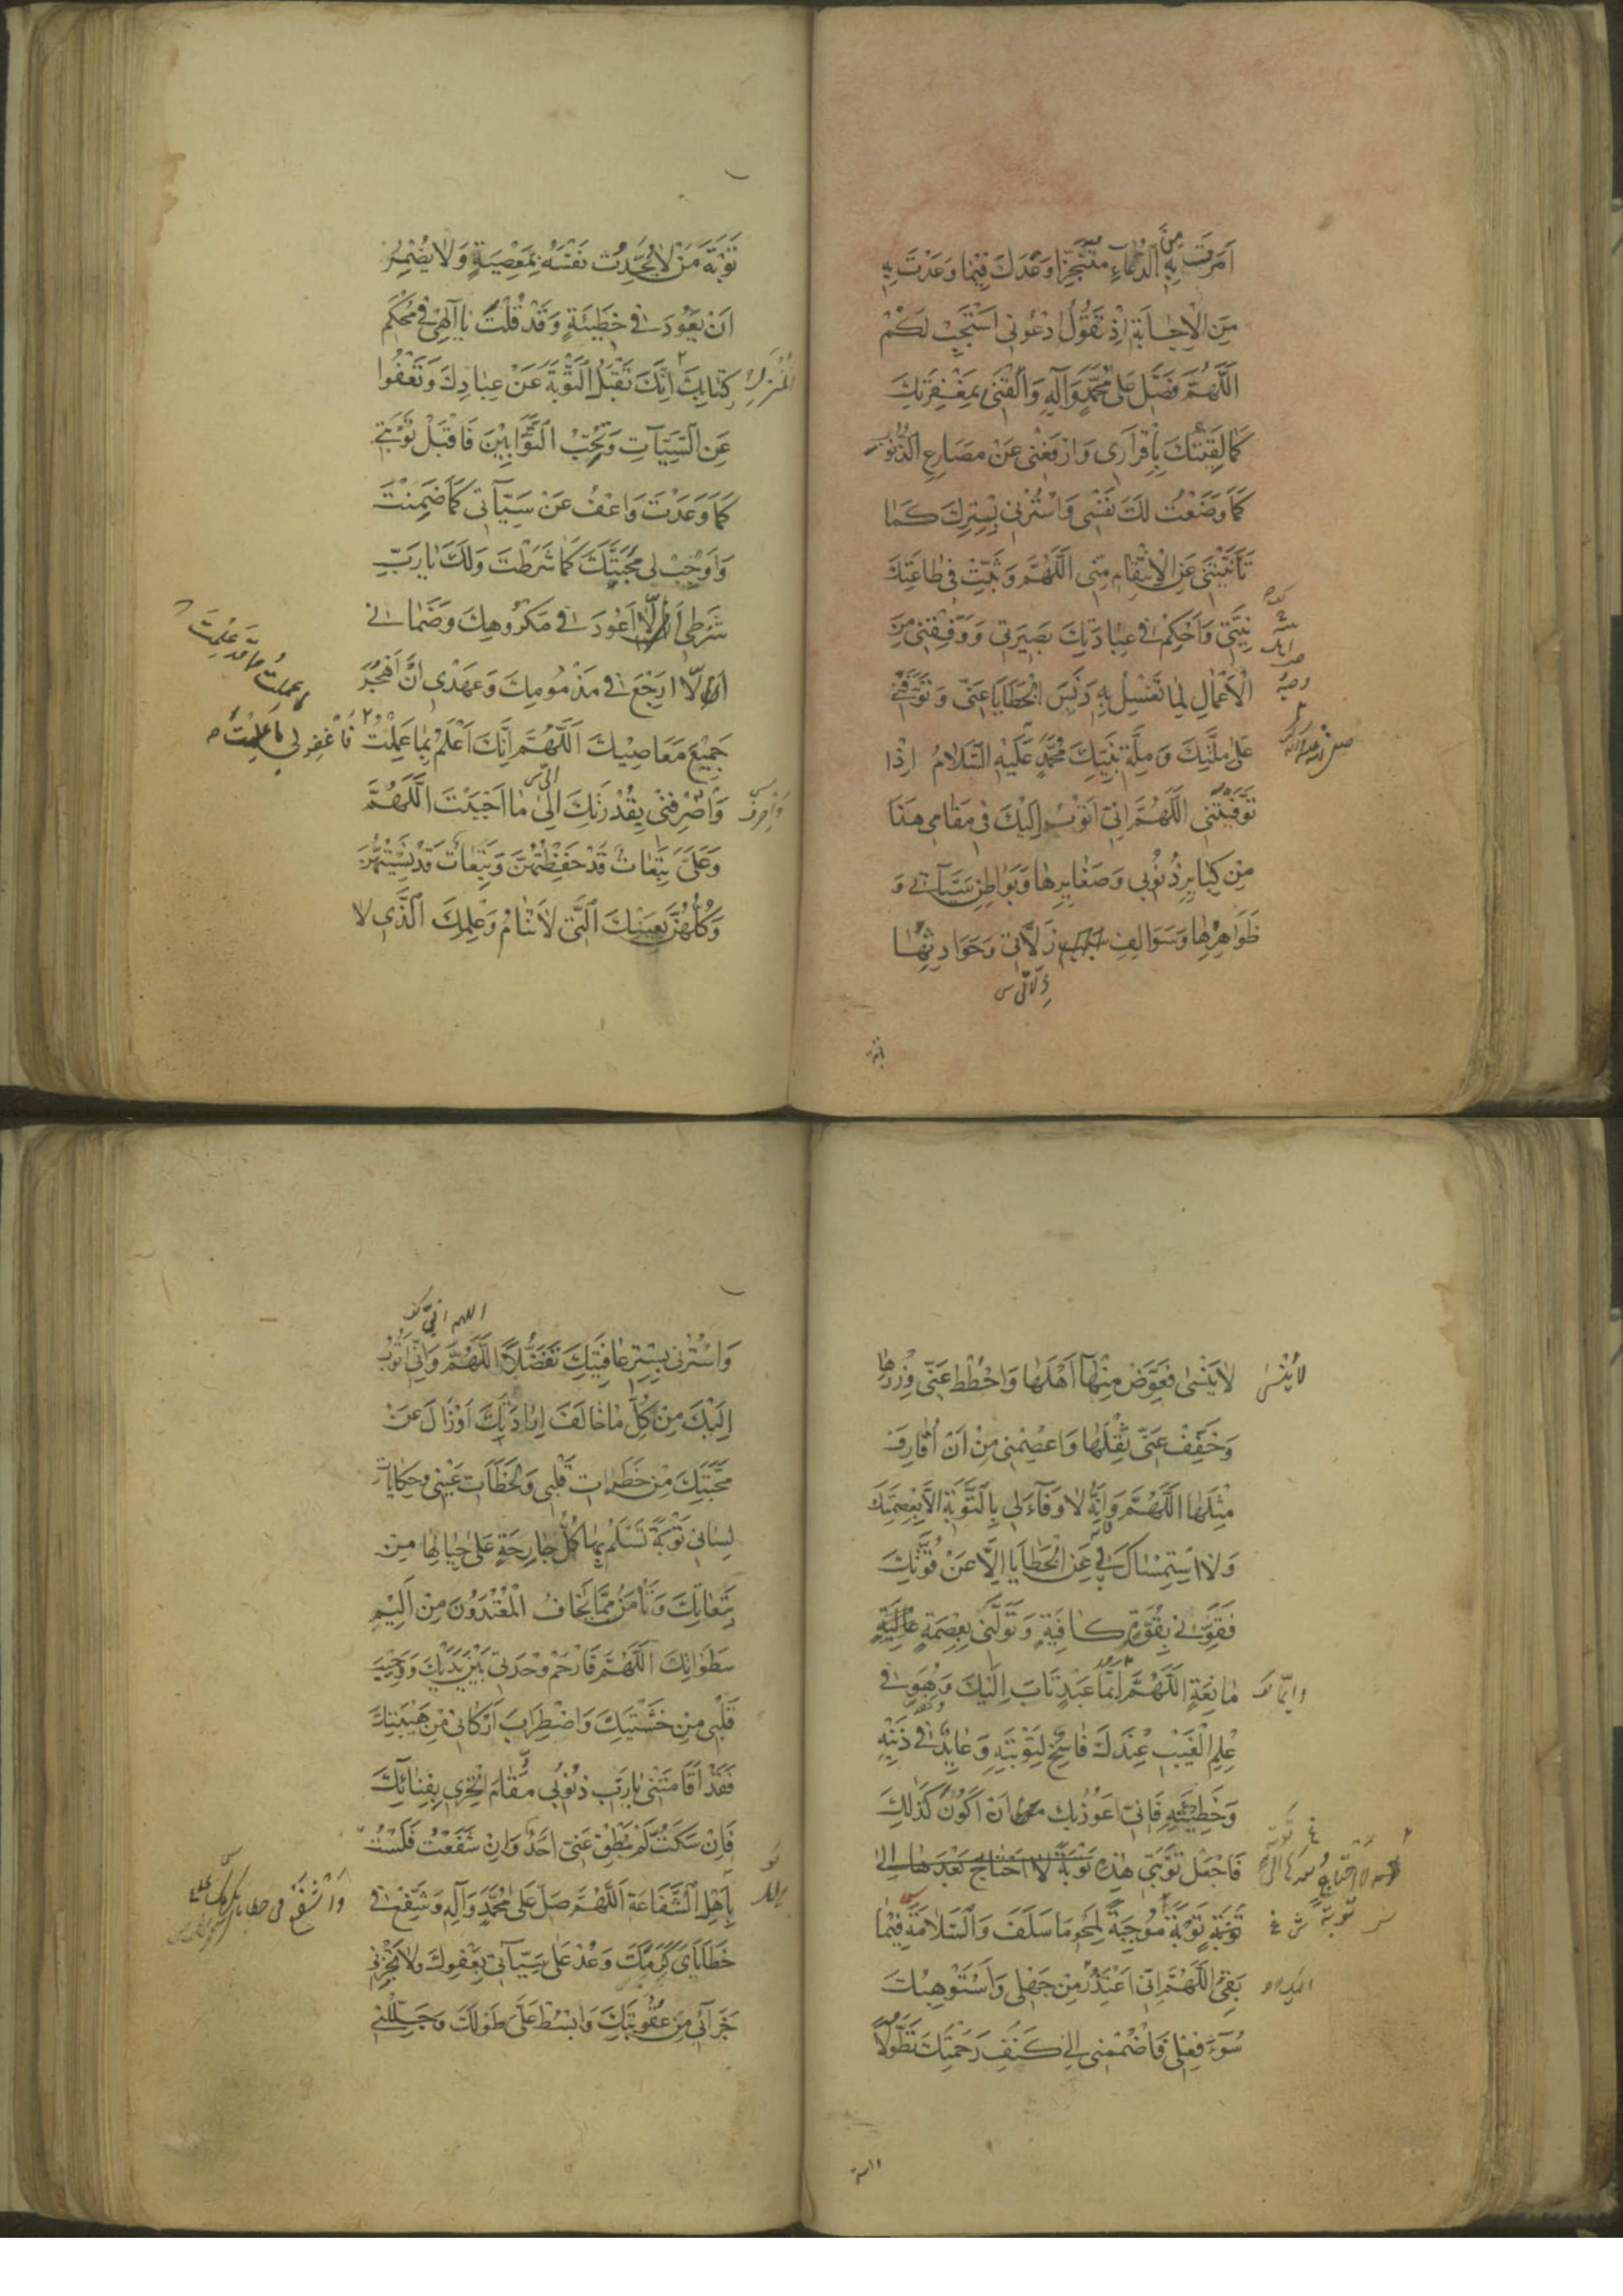 اَمَرْتَ بِهِ مِنَ الدُّعَاءِ مُتَنَجِّزًا وَعْدَكَ فِيمَا وَعَدْتَ بِهِ
مِنَ الْاِجَابَةِ اِذْ تَقُولُ ادْعُونِي اَسْتَجِبْ لَكُمْ
اَللّٰهُمَّ فَصَلِّ عَلَى مُحَمَّدٍ وَآلِهِ وَالْقَنِي بِمَغْفِرَتِكَ
كَمَا لَقِيتُكَ بِاِقْرَارِي وَارْفَعْنِي عَنْ مَصَارِعِ الذُّنُوبِ
كَمَا وَضَعْتُ لَكَ نَفْسِي وَاسْتُرْنِي بِسِتْرِكَ كَمَا
تَأَنَّيْتَنِي عَنِ الْاِنْتِقَامِ مِنِّي اَللّٰهُمَّ وَثَبِّتْ فِي طَاعَتِكَ
نِيَّتِي وَاَحْكِمْ فِي عِبَادَتِكَ بَصِيرَتِي وَوَفِّقْنِي مِنَ
الْاَعْمَالِ لِمَا تَغْسِلُ بِهِ دَنَسَ الْخَطَايَا عَنِّي وَتَوَفَّنِي
عَلَى مِلَّتِكَ وَمِلَّةِ نَبِيِّكَ مُحَمَّدٍ عَلَيْهِ السَّلَامُ اِذَا
تَوَفَّيْتَنِي اَللّٰهُمَّ اِنِّي اَتُوبُ اِلَيْكَ فِي مَقَامِي هٰذَا
مِنْ كَبَايِرِ ذُنُوبِي وَصَغَايِرِهَا وَبَوَاطِنِ سَيِّآتِي وَ
ظَوَاهِرِهَا وَسَوَالِفِ زَلَّاتِي وَحَوَادِثِهَا
زَلَّاتِي س
تَوْبَةَ مَنْ لَا يُحَدِّثُ نَفْسَهُ بِمَعْصِيَةٍ وَلَا يُضْمِرُ
اَنْ يَعُودَ فِي خَطِيئَةٍ وَقَدْ قُلْتَ يَا اِلٰهِي فِي مُحْكَمِ
كِتَابِكَ اِنَّكَ تَقْبَلُ التَّوْبَةَ عَنْ عِبَادِكَ وَتَعْفُوا
عَنِ السَّيِّآتِ وَتُحِبُّ التَّوَّابِينَ فَاقْبَلْ تَوْبَتِي
كَمَا وَعَدْتَ وَاعْفُ عَنْ سَيِّآتِي كَمَا ضَمِنْتَ
وَاَوْجِبْ لِي مَحَبَّتَكَ كَمَا شَرَطْتَ وَلَكَ يَا رَبِّ
شَرْطِي اَلَّا اَعُودَ فِي مَكْرُوهِكَ وَضَمَانِي
اَنْ لَّا اَرْجِعَ فِي مَذْمُومِكَ وَعَهْدِي اَنْ اَهْجُرَ
جَمِيعَ مَعَاصِيكَ اَللّٰهُمَّ اِنَّكَ اَعْلَمُ بِمَا عَمِلْتُ فَاغْفِرْ لِي مَا عَلِمْتَ
وَاصْرِفْنِي بِقُدْرَتِكَ اِلَى مَا اَحْبَبْتَ اَللّٰهُمَّ
وَعَلَيَّ تَبِعَاتٌ قَدْ حَفِظْتُهُنَّ وَتَبِعَاتٌ قَدْ نَسِيتُهُنَّ
وَكُلُّهُنَّ بِعَيْنِكَ الَّتِي لَا تَنَامُ وَعِلْمِكَ الَّذِي لَا
لَا يُنْسَى
لَا يَنْسَى فَعَوِّضْ مِنْهَا اَهْلَهَا وَاحْطُطْ عَنِّي وِزْرَهَا
وَخَفِّفْ عَنِّي ثِقْلَهَا وَاعْصِمْنِي مِنْ اَنْ اُقَارِفَ
مِثْلَهَا اَللّٰهُمَّ وَاِنَّهُ لَا وَفَاءَ لِي بِالتَّوْبَةِ اِلَّا بِعِصْمَتِكَ
وَلَا اسْتِمْسَاكَ بِي عَنِ الْخَطَايَا اِلَّا عَنْ قُوَّتِكَ
فَقَوِّنِي بِقُوَّةٍ كَافِيَةٍ وَتَوَلَّنِي بِعِصْمَةٍ
مَانِعَةٍ اَللّٰهُمَّ اَيُّمَا عَبْدٍ تَابَ اِلَيْكَ وَهُوَ فِي
عِلْمِ الْغَيْبِ عِنْدَكَ فَاسِخٌ لِتَوْبَتِهِ وَعَايِدٌ فِي ذَنْبِهِ
وَخَطِيئَتِهِ فَاِنِّي اَعُوذُ بِكَ اَنْ اَكُونَ كَذٰلِكَ
فَاجْعَلْ تَوْبَتِي هٰذِهِ تَوْبَةً لَا اَحْتَاجُ بَعْدَهَا اِلَى
تَوْبَةٍ تَوْبَةً مُوجِبَةً لِمَحْوِ مَا سَلَفَ وَالسَّلَامَةِ فِيمَا
بَقِيَ اَللّٰهُمَّ اِنِّي اَعْتَذِرُ مِنْ جَهْلِي وَاَسْتَوْهِبُكَ
سُوءَ فِعْلِي فَاضْمُمْنِي اِلَى كَنَفِ رَحْمَتِكَ تَطَوُّلًا
اللهم اني
وَاسْتُرْنِي بِسِتْرِ عَافِيَتِكَ تَفَضُّلًا اَللّٰهُمَّ وَاِنِّي اَتُوبُ
اِلَيْكَ مِنْ كُلِّ مَا خَالَفَ اِرَادَتَكَ اَوْ زَالَ عَنْ
مَحَبَّتِكَ مِنْ خَطَرَاتِ قَلْبِي وَلَحَظَاتِ عَيْنِي وَحِكَايَاتِ
لِسَانِي تَوْبَةً تَسْلَمُ بِهَا كُلُّ جَارِحَةٍ عَلَى حِيَالِهَا مِنْ
تَبِعَاتِكَ وَتَأْمَنُ مِمَّا يَخَافُ الْمُعْتَدُونَ مِنْ اَلِيمِ
سَطَوَاتِكَ اَللّٰهُمَّ فَارْحَمْ وَحْدَتِي بَيْنَ يَدَيْكَ وَوَجِيبَ
قَلْبِي مِنْ خَشْيَتِكَ وَاضْطِرَابَ اَرْكَانِي مِنْ هَيْبَتِكَ
فَقَدْ اَقَامَتْنِي يَا رَبِّ ذُنُوبِي مَقَامَ الْخِزْيِ بِفِنَائِكَ
فَاِنْ سَكَتُّ لَمْ يَنْطِقْ عَنِّي اَحَدٌ وَاِنْ شَفَعْتُ فَلَسْتُ
بِاَهْلِ الشَّفَاعَةِ اَللّٰهُمَّ صَلِّ عَلَى مُحَمَّدٍ وَآلِهِ وَشَفِّعْ فِي
خَطَايَايَ كَرَمَكَ وَعُدْ عَلَى سَيِّآتِي بِعَفْوِكَ وَلَا تَجْزِنِي
جَزَآئِي مِنْ عُقُوبَتِكَ وَابْسُطْ عَلَيَّ طَوْلَكَ وَجَلِّلْنِي